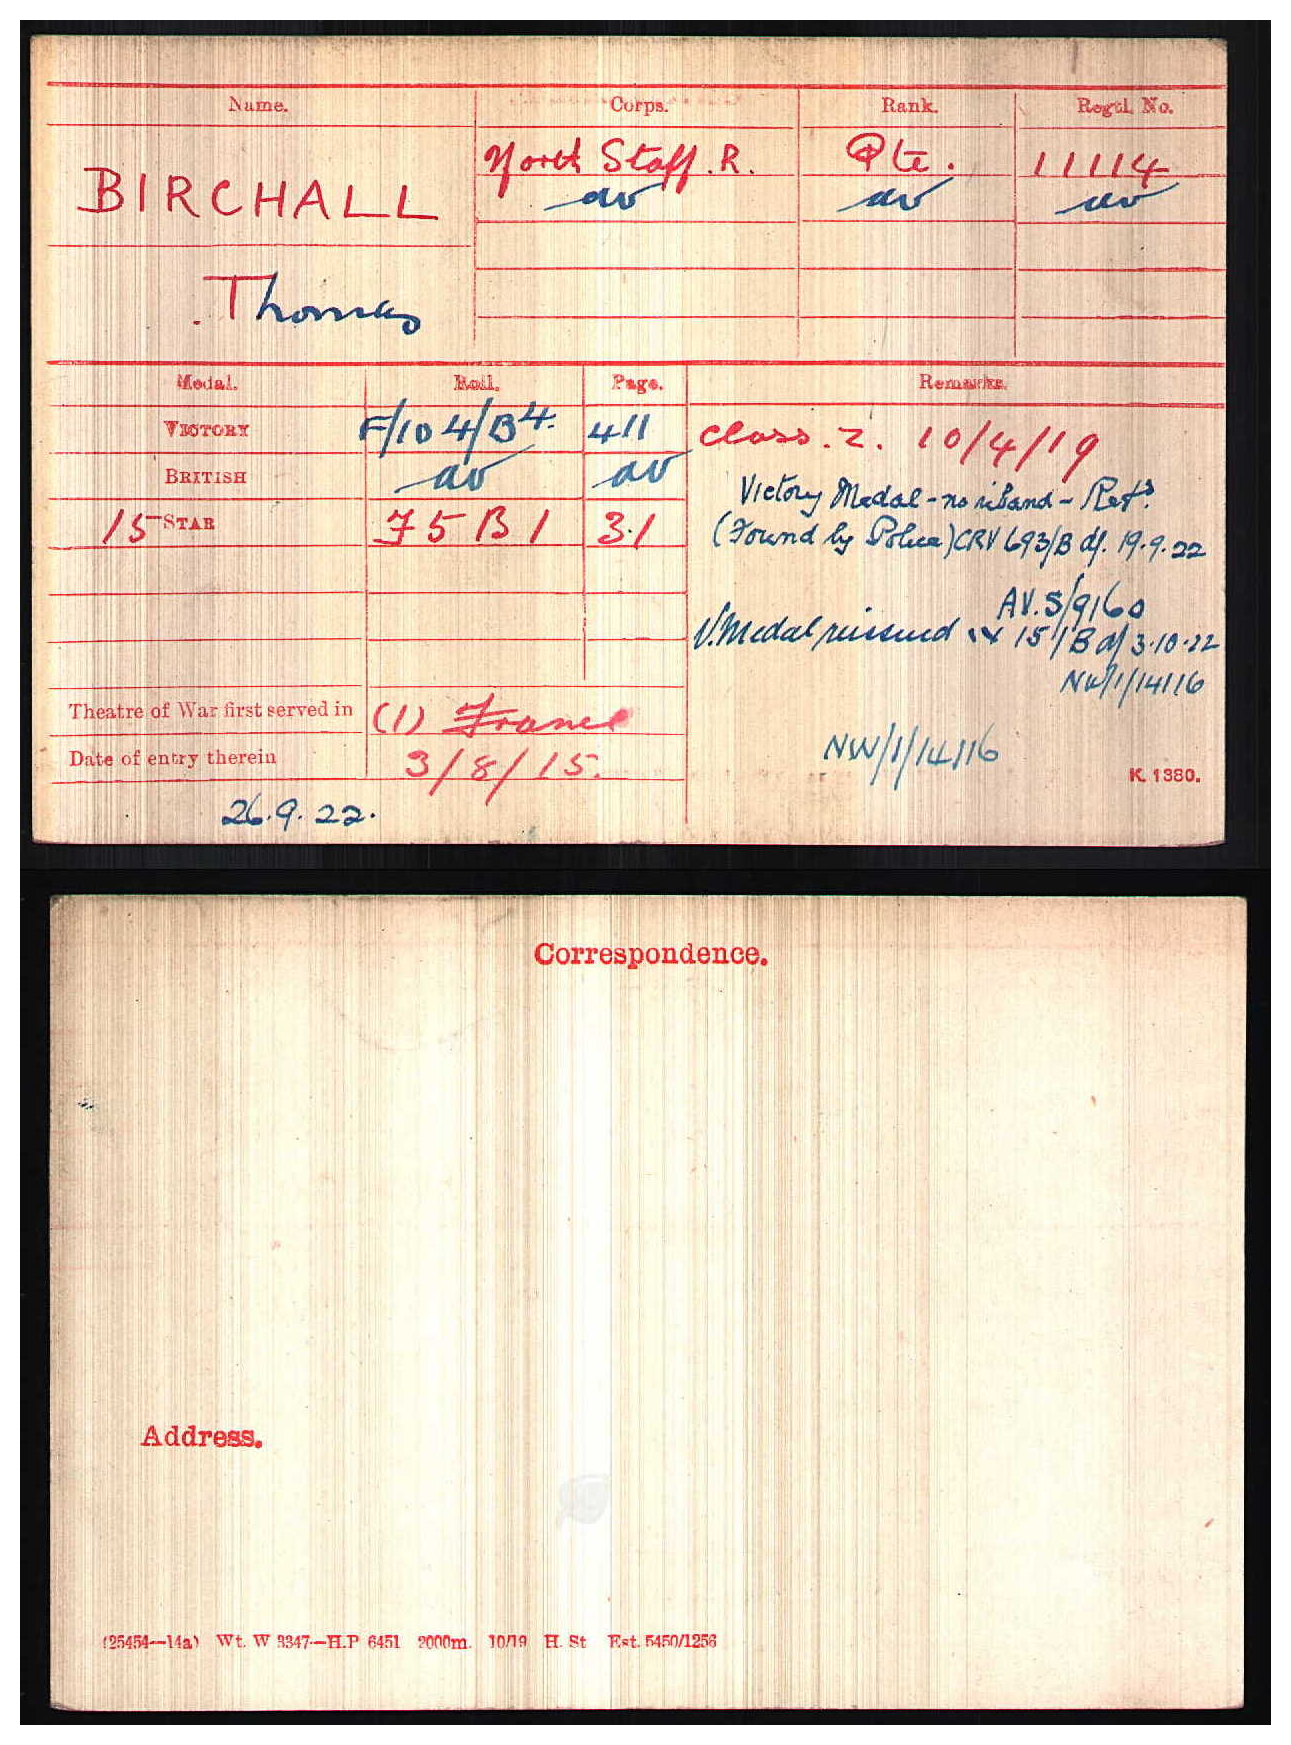 Name. Corps. Rank. Regtl. No.
BIRCHALL North Staff. R. Pte. 11114
do do do
Thomas
Medal. Roll. Page. Remarks.
VICTORY F/104/B4. 411 Class. Z. 10/4/19
BRITISH do do Victory Medal - no riband - Retd
15 STAR F 5 B 1 31 (Found by Police) CRV 693/B df. 19.9.22
AV.S/9160
V. Medal reissued 15/B df 3.10.22
NW/1/14116
Theatre of War first served in (1) France
Date of entry therein 3/8/15. NW/1/14116
K. 1380.
26.9.22.
Correspondence.
Address.
(25454—14a) Wt. W 3347—H.P 6451 2000m. 10/19 H. St Est. 5450/1256